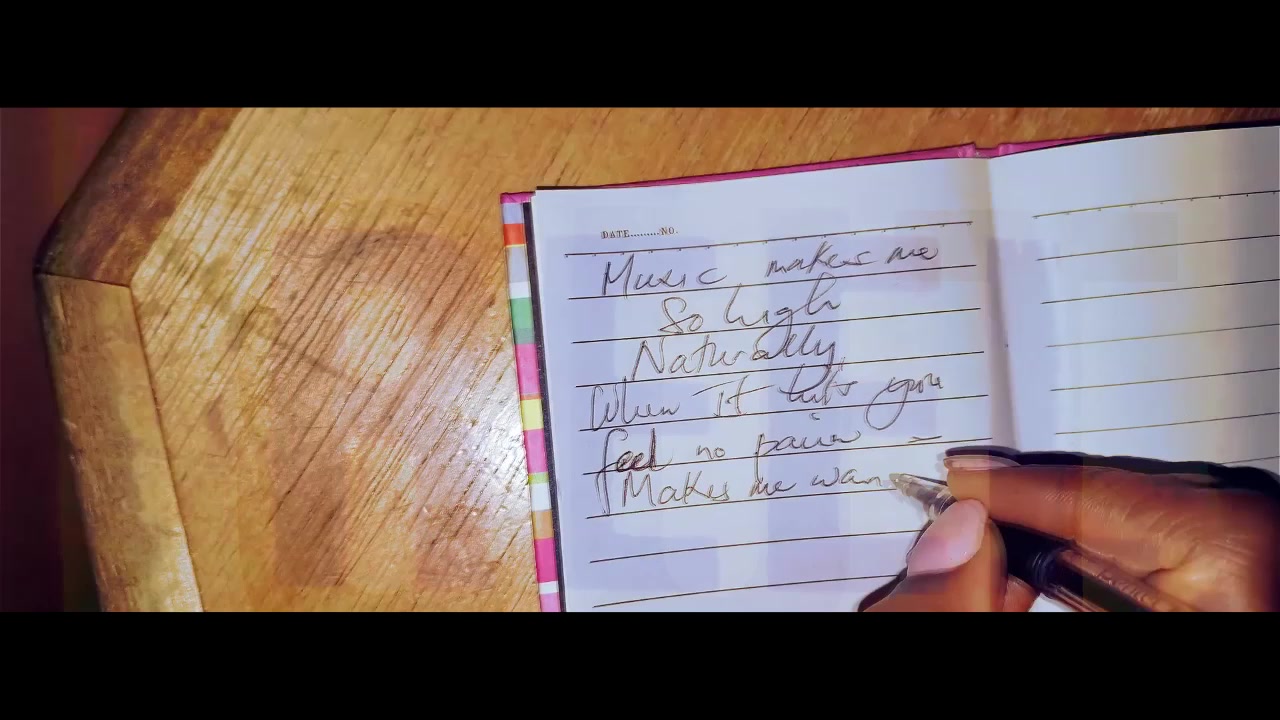 DATE.........NO.
Music makes me
So high
Naturally
When It hits you
feel no pain –
Makes me wan